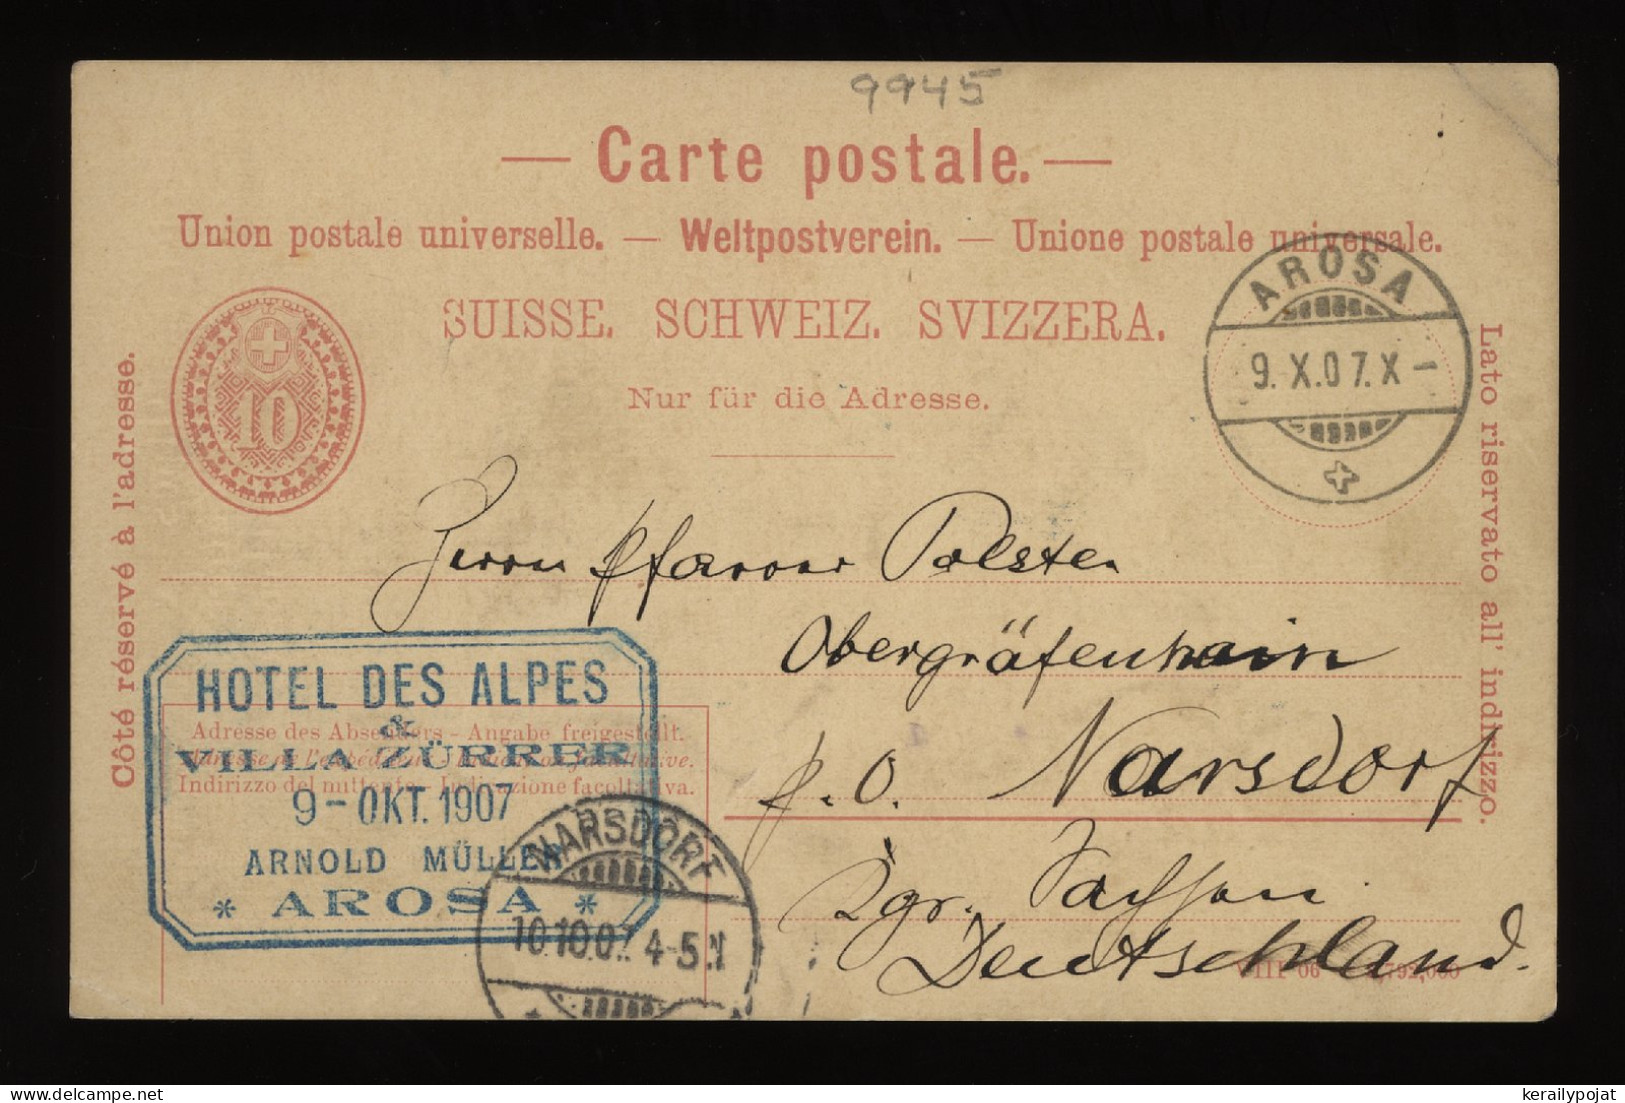 9945
— Carte postale. —
Union postale universelle. — Weltpostverein. — Unione postale universale.
SUISSE. SCHWEIZ. SVIZZERA.
Nur für die Adresse.
Côté réservé à l'adresse.
Lato riservato all' indirizzo.
10
AROSA
9. X. 07. X –
Herrn Pfarrer Polster
Obergräfenhain
p. O. Narsdorf
Kgr. Sachsen
Deutschland.
HOTEL DES ALPES
&
VILLA ZÜRRER
9 - OKT. 1907
ARNOLD MÜLLER
* AROSA *
Adresse des Absenders - Angabe freigestellt.
Adresse de l'expéditeur - Indication facultative.
Indirizzo del mittente - Indicazione facoltativa.
NARSDORF
10.10.07. 4-5 N
VIII 06
kerailypojat